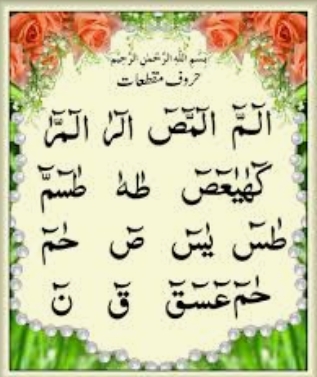 بِسْمِ اللهِ الرَّحْمٰنِ الرَّحِيْمِ
حروف مقطعات
الٓمّٓ الٓمّٓصٓ الٓرٰ الٓمّٓرٰ
كٓهٰيٰعٓصٓ طٰهٰ طٰسٓمّٓ
طٰسٓ يٰسٓ صٓ حٰمٓ
حٰمٓ عٓسٓقٓ قٓ نٓ